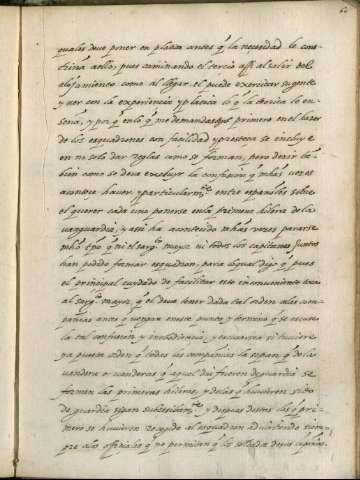 60
quales deve poner en platica antes q̃ la necesidad le cons
triña aello, pues caminando el tercio assi al salir del
alojamiento como al llegar el puede exercitar su gente
y ver con la experiencia y platica lo q̃ la theorica le en
seña, y por q̃ en lo q̃ me demandastes primero en el hazer
de los esquadrones con facilidad y presteza se incluye
en no solo dar reglas como se forman, pero dezir tã
bien como se deve escusar la confusion q̃ m̃has vezes
acontece haver y particularmte entre españoles sobre
el querer cada uno ponerse en la primera hilera de la
vanguardia, y assi ha acontecido m̃has vezes pararse
m̃ho tpõ q̃ ni el sargto mayor ni todos los capitanes juntos
han podido formar esquadron, para lo qual digo q̃ pues
el principal cuidado de facilitar este inconveniente toca
al sargto mayor, q̃ el deve tener dada tal orden a las com
pañias antes q̃ vengan a este punto y termino q̃ se escuse
la tal confusion y inobediencia, y escusarse si huviere
ya puesto orden q̃ todas las compañias la sepan q̃ de la
vandera o vanderas q̃ aquel dia fueren de guardia se
forman las primeras hileras, y de las q̃ huvieren sido
de guardia sigan subcesivamte y despues destas las q̃ pri
mero se huvieren recogido al esquadron advirtiendo siem
pre a los officiales q̃ no permitan q̃ los soldados de sus compañias